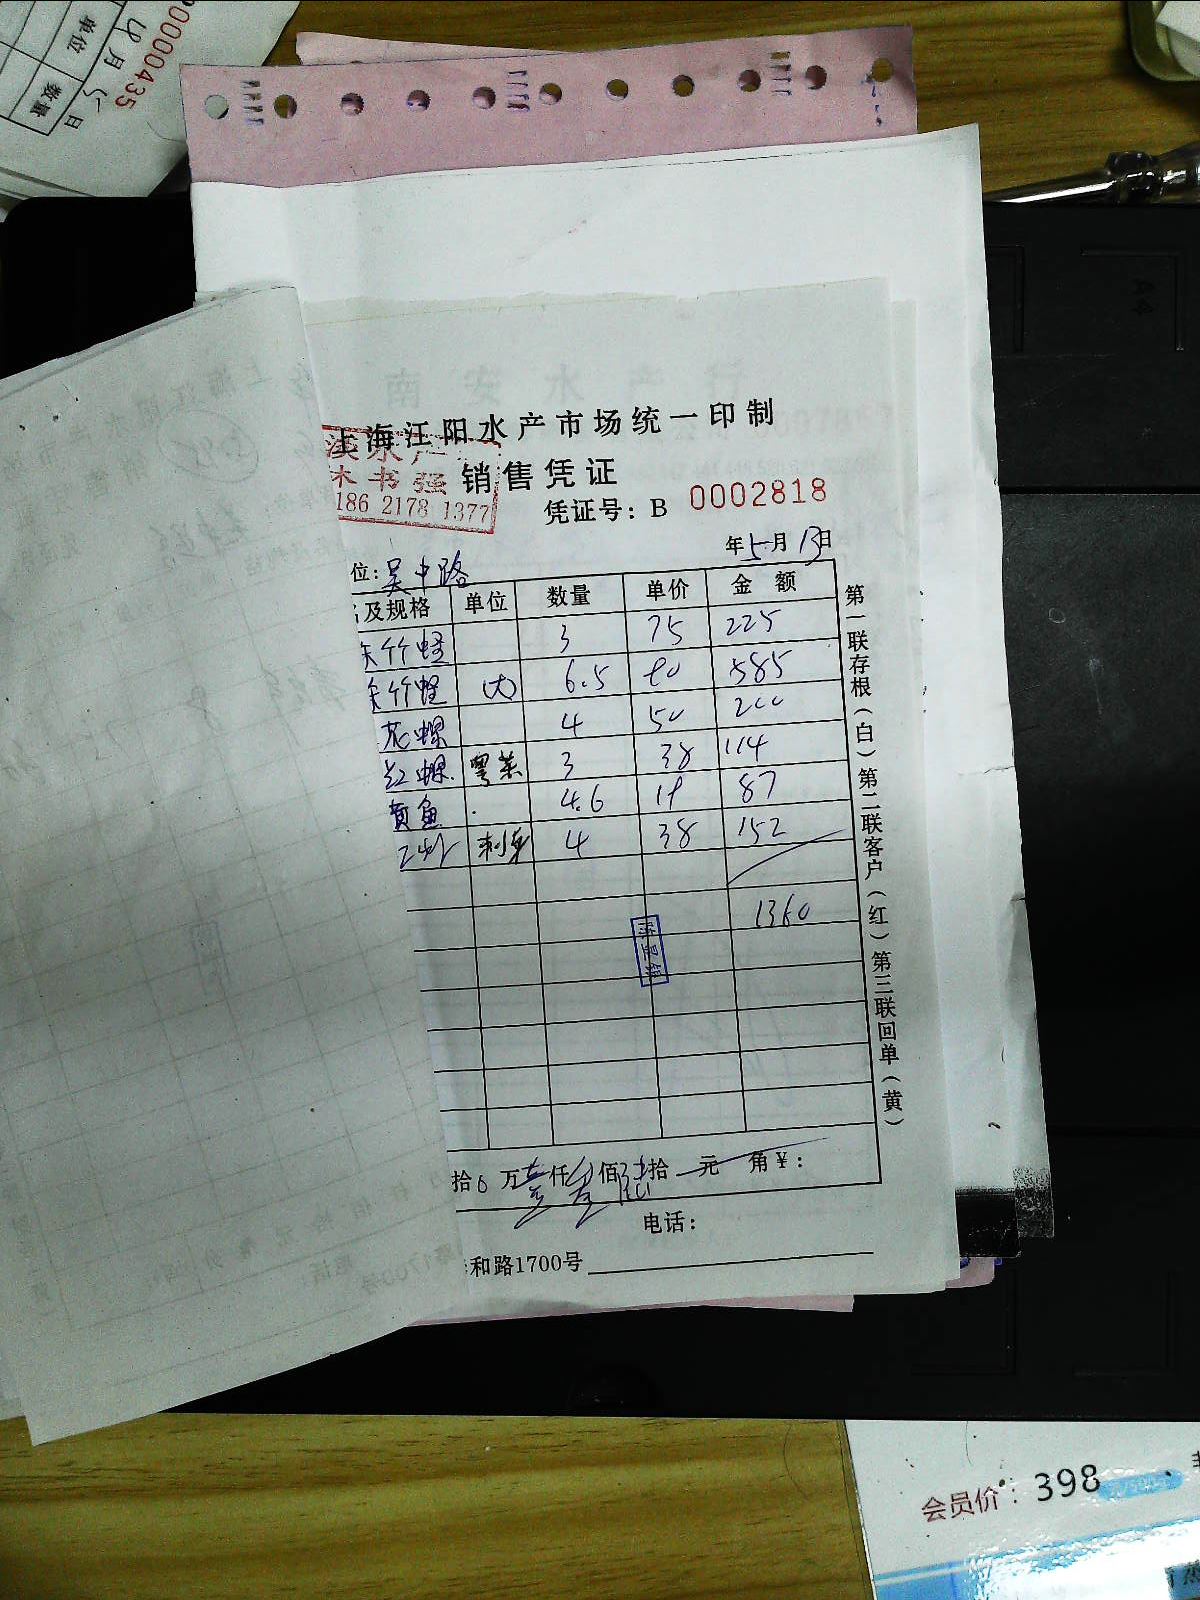 0000435
4月5日
单位
数量
上海江阳水产市场统一印制
销售凭证
水产
书强
186 2178 1377
凭证号：B 0002818
年5月13日
位：吴中路
及规格 单位 数量 单价 金额
竹蛏 3 75 225
竹蛏 (大) 6.5 90 585
花螺 4 50 200
红螺 粤菜 3 38 114
黄鱼 4.6 19 87
刺身 4 38 152
1360
拾0万壹仟叁佰陆拾 元 角¥：
电话：
和路1700号
第一联存根（白）第二联客户（红）第三联回单（黄）
南安水产行
A4
会员价：398